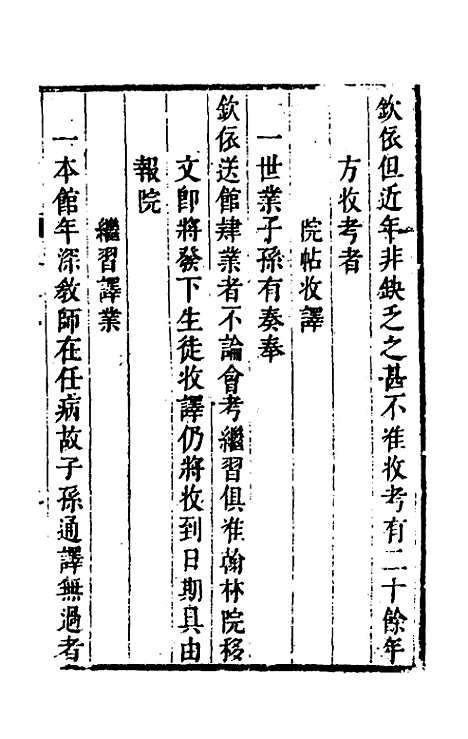 欽依但近年非缺乏之甚不准收考有二十餘年
方收考者
院帖收譯
一世業子孫有奏奉
欽依送館肄業者不論會考繼習俱准翰林院移
文即將發下生徒收譯仍將收到日期具由
報院
繼習譯業
一本館年深教師在任病故子孫通譯無過者